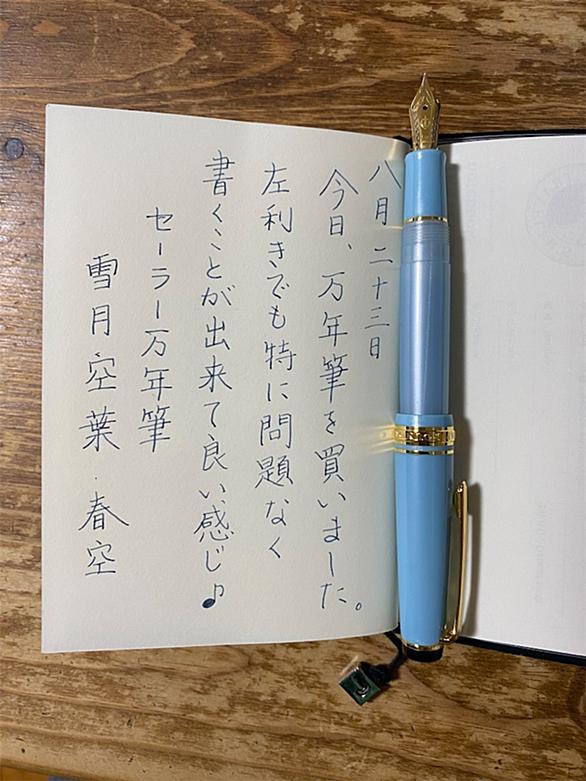 八月二十三日
今日、万年筆を買いました。
左利きでも特に問題なく
書くことが出来て良い感じ♪
セーラー万年筆
雪月空葉・春空